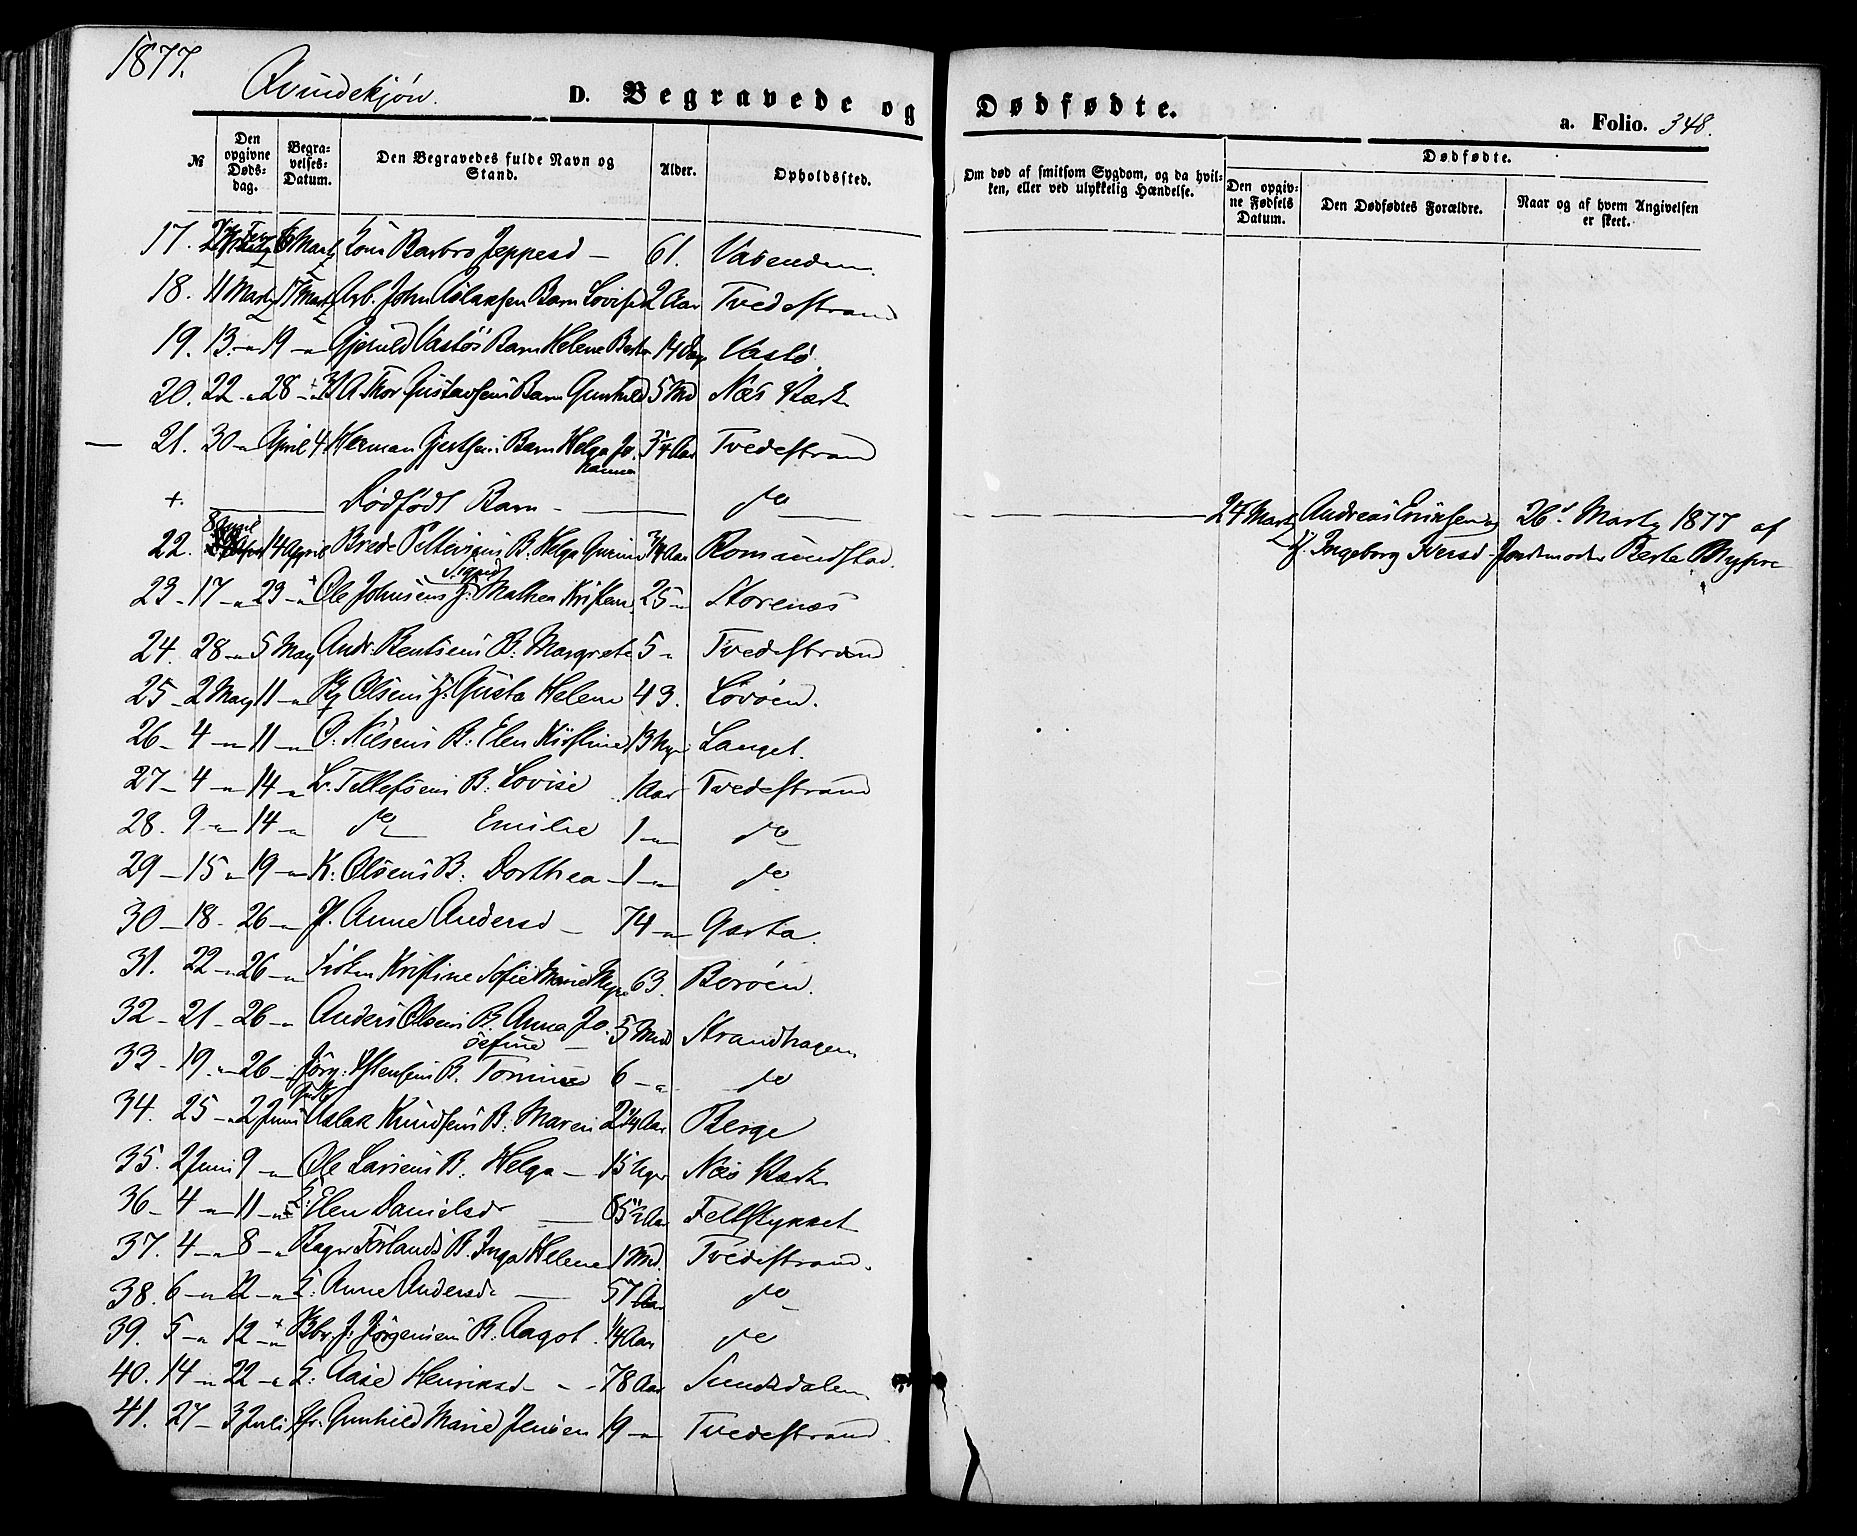 1877.
Qvindekjøn.
D. Begravede og Dødfødte.
a. Folio. 348.
№
Den opgivne Døds-dag.
Begra-velses-Datum.
Den Begravedes fulde Navn og Stand.
Alder.
Opholdssted.
Om død af smitsom Sygdom, og da hvil-ken, eller ved ulykkelig Hændelse.
Dødfødte.
Den opgiv-ne Fødsels Datum.
Den Dødfødtes Forældre.
Naar og af hvem Angivelsen er skeet.
17. 6 Marts Kone Barbro Jeppesd — 61. Vasenden
18. 11 Marts 17 Marts Arb. John Aslaksens Barn Lovise 2 Aar Tvedestrand
19. 13 — 19 — Gjeruld Vastøs Barn Helene Berte 14 Dag Vastø.
20. 22 — 28 — + A. Thor Gustavsens Barn Gunhild 5 Md Næs Værk
21. 30 — April 4 Herman Gjertsens Barn Helga Jo- 3 1/4 Aar Tvedestrand
hanna
+ Dødfødt Barn — do — 24 Marts Andreas Eriksen og 26d Marts 1877 af
H. Ingeborg Iversd. Jordmoder Berte Myhre
22. 8 April 14 April Brede Pettersens B. Helga 3/4 Aar Romundstad.
23 — 17 — 23 — + Ole Johnsens H. Sigrid Mathea Kristen. 25 — Storenæs
24. 28 — 5 May Andr. Bentsens B. Margrete 5 — Tvedestrand
25 — 2 May 11 — Olsens H. Gusta Helene 43. Lövöen.
26 — 4 — 11 — O. Nilsens B: Elen Kirstine 13 Uger Langet.
27 — 4 — 14 — L. Tellefsens B: Lovise 1 Aar Tvedestrand
28. 9 — 14 — do Emilie 1 — do
29 — 15 — 19 — K: Olsens B: Dorthea — 1 — do
30 — 18 — 26 — Anne Andersd — 74 — Garta.
31. 22 — 26 — Fröken Kristine Sofie Marie 63. Boröen.
32 — 21 — 26 — Anders Olsens B. Anna Jo- 5 Md Strandhagen
sefine —
33 — 19 — 26 — Jörg: B. Tomine 6 — do
34. 25 — 2 Juni Aslak Knudsens B. Maren 2 1/4 Aar Berge
35. 2 Juni 9 — Ole Larsens B. Helga — 15 Uger Næs Værk
36 — 4 — 11 — L. Elen Danielsdr — 85 1/2 Aar Fellstykket
37. 4 — 8 — Bager Förlands B. Inga Helene 1 Md. Tvedestrand.
38. 6 — — L. Anne Andersdr — 57 Aar do
39. 5 — 12 — + J. Jörgensens B. Aagot. 1/4 Aar do
40. 14 — 22 — L: Aase Henriksd — 78 Aar Sundsdalen
41. 27 — 3 Juli Gunhild Marie Jensen 19 — Tvedestrand